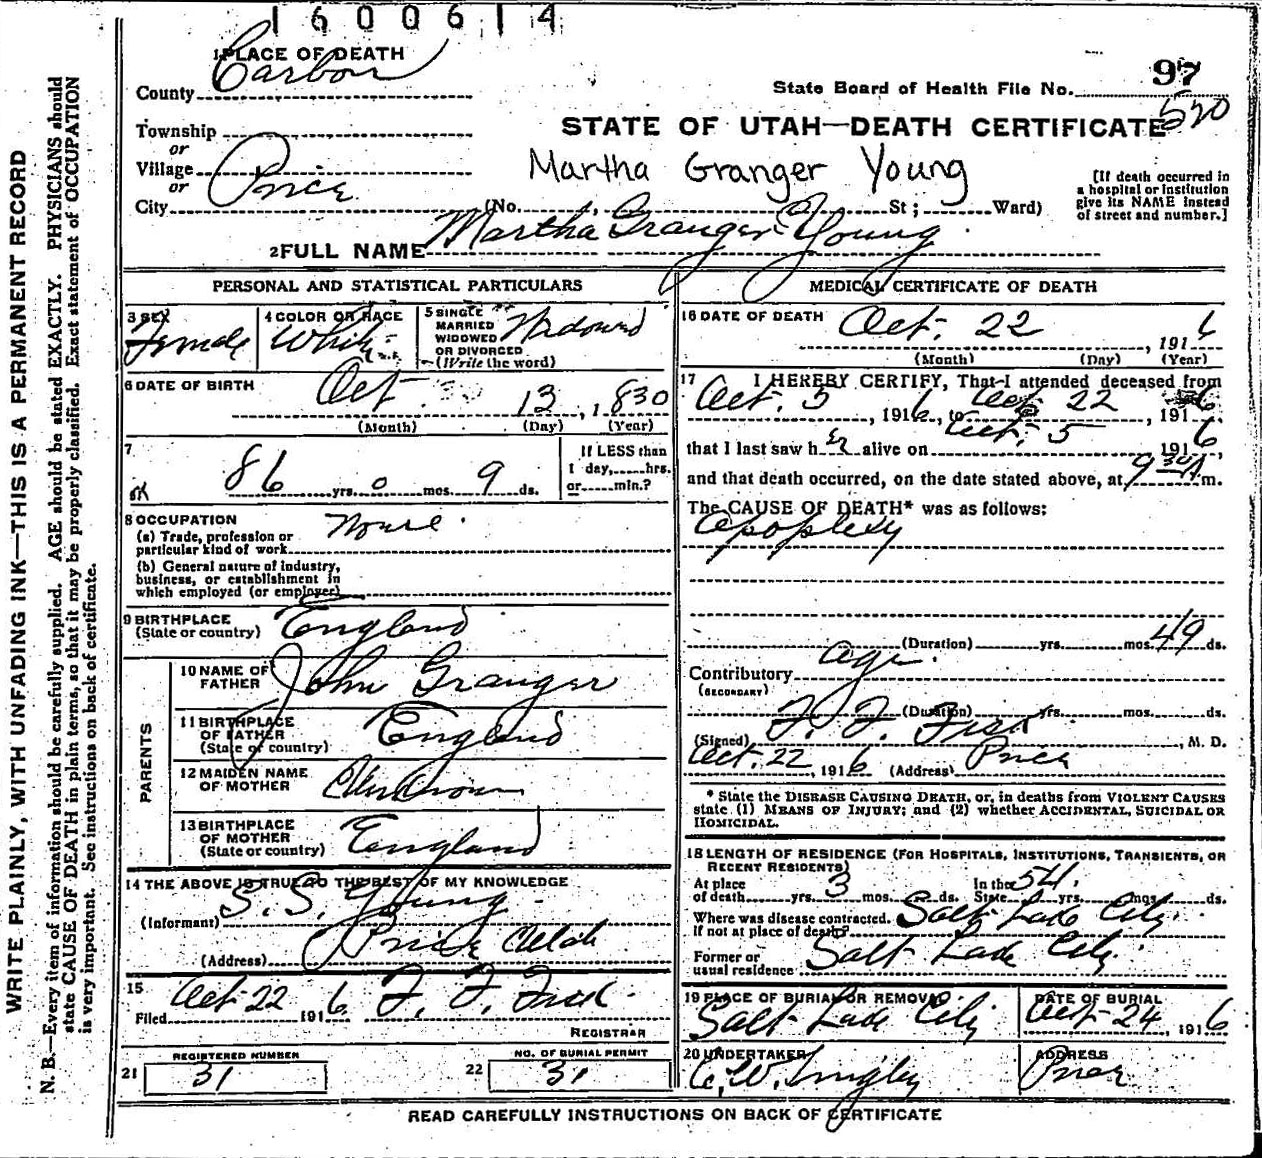 1600614
1 PLACE OF DEATH
County Carbon
State Board of Health File No. 97
520
STATE OF UTAH—DEATH CERTIFICATE
Township
or
Village
or
City Price
Martha Granger Young
(No. , St ; Ward)
[If death occurred in
a hospital or institution
give its NAME instead
of street and number.]
2 FULL NAME Martha Granger Young
PERSONAL AND STATISTICAL PARTICULARS
3 SEX Female
4 COLOR OR RACE White
5 SINGLE
MARRIED
WIDOWED
OR DIVORCED
(Write the word) Widowed
6 DATE OF BIRTH Oct 13, 1830
(Month) (Day) (Year)
7 86 yrs. 0 mos. 9 ds.
If LESS than
1 day, hrs.
or min.?
8 OCCUPATION
(a) Trade, profession or
particular kind of work
(b) General nature of industry,
business, or establishment in
which employed (or employer)
9 BIRTHPLACE
(State or country) England
PARENTS
10 NAME OF
FATHER John Granger
11 BIRTHPLACE
OF FATHER
(State or country) England
12 MAIDEN NAME
OF MOTHER
13 BIRTHPLACE
OF MOTHER
(State or country) England
14 THE ABOVE IS TRUE TO THE BEST OF MY KNOWLEDGE
(Informant) S. S. Young
(Address) Price Utah
15
Filed Oct 22 1916 F. F. Fisk
REGISTRAR
21 REGISTERED NUMBER
31
22 NO. OF BURIAL PERMIT
31
MEDICAL CERTIFICATE OF DEATH
16 DATE OF DEATH Oct. 22, 1916
(Month) (Day) (Year)
17 I HEREBY CERTIFY, That I attended deceased from
Oct. 5, 1916, to Oct 22, 1916
that I last saw her alive on Oct. 5 1916
and that death occurred, on the date stated above, at 9 30 A.m.
The CAUSE OF DEATH* was as follows:
Apoplexy
(Duration) yrs. mos. 49 ds.
Contributory age.
(SECONDARY)
(Duration) yrs. mos. ds.
(Signed) F. F. Fisk, M. D.
Oct. 22, 1916 (Address) Price
* State the DISEASE CAUSING DEATH, or, in deaths from VIOLENT CAUSES
state (1) MEANS OF INJURY; and (2) whether ACCIDENTAL, SUICIDAL OR
HOMICIDAL.
18 LENGTH OF RESIDENCE (FOR HOSPITALS, INSTITUTIONS, TRANSIENTS, OR
RECENT RESIDENTS)
At place In the
of death yrs. 3 mos. ds. State 54 yrs. mos. ds.
Where was disease contracted.
If not at place of death? Salt Lake City
Former or
usual residence Salt Lake City
19 PLACE OF BURIAL OR REMOVAL
Salt Lake City
DATE OF BURIAL
Oct 24, 1916
20 UNDERTAKER
ADDRESS
Price
READ CAREFULLY INSTRUCTIONS ON BACK OF CERTIFICATE
WRITE PLAINLY, WITH UNFADING INK—THIS IS A PERMANENT RECORD
N. B.—Every item of information should be carefully supplied. AGE should be stated EXACTLY. PHYSICIANS should
state CAUSE OF DEATH in plain terms, so that it may be properly classified. Exact statement of OCCUPATION
is very important. See instructions on back of certificate.